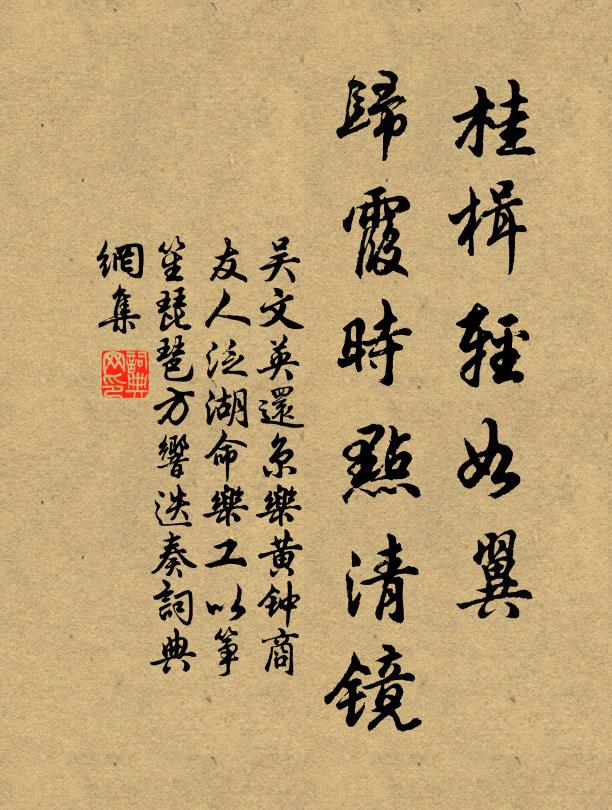 桂楫輕如翼
歸霞時點清镜
吴文英還京樂黄钟商
友人泛湖命樂工以筝
笙琵琶方響迭奏詞典
網集
詞典
网印